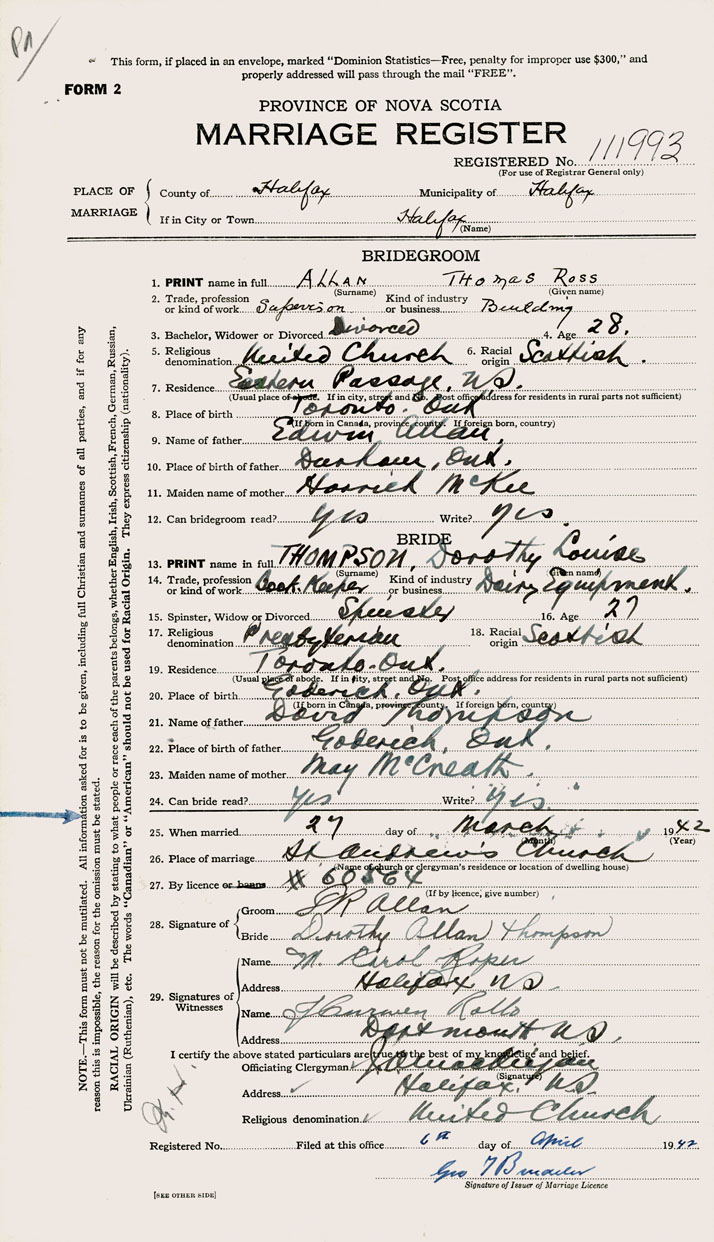 This form, if placed in an envelope, marked "Dominion Statistics—Free, penalty for improper use $300," and
properly addressed will pass through the mail "FREE".
FORM 2
PROVINCE OF NOVA SCOTIA
MARRIAGE REGISTER
REGISTERED No. 111993
(For use of Registrar General only)
PLACE OF MARRIAGE
County of Halifax Municipality of Halifax
If in City or Town Halifax
(Name)
BRIDEGROOM
1. PRINT name in full ALLAN THOMAS ROSS
(Surname) (Given name)
2. Trade, profession or kind of work Supervisor Kind of industry or business Building
3. Bachelor, Widower or Divorced Divorced 4. Age 28.
5. Religious denomination United Church 6. Racial origin Scottish.
7. Residence Eastern Passage, N.S.
(Usual place of abode. If in city, street and No. Post office address for residents in rural parts not sufficient)
8. Place of birth Toronto. Ont
(If born in Canada, province, county. If foreign born, country)
9. Name of father Edwin Allan,
10. Place of birth of father Durham, Ont.
11. Maiden name of mother McKee
12. Can bridegroom read? Yes Write? Yes.
BRIDE
13. PRINT name in full THOMPSON, Dorothy Louise
(Surname) (Given name)
14. Trade, profession or kind of work Book-Keeper Kind of industry or business Dairy Equipment.
15. Spinster, Widow or Divorced Spinster 16. Age 27
17. Religious denomination Presbyterian 18. Racial origin Scottish
19. Residence Toronto. Ont.
(Usual place of abode. If in city, street and No. Post office address for residents in rural parts not sufficient)
20. Place of birth Goderich, Ont.
(If born in Canada, province, county. If foreign born, country)
21. Name of father David Thompson
22. Place of birth of father Goderich, Ont.
23. Maiden name of mother May McCreath.
24. Can bride read? Yes Write? Yes.
25. When married 27 day of March 1942
(Month) (Year)
26. Place of marriage St Andrew's Church
(Name of church or clergyman's residence or location of dwelling house)
27. By licence or banns # 60564
(If by licence, give number)
28. Signature of
Groom Allan
Bride Dorothy Allan (Thompson)
29. Signatures of Witnesses
Name M. Carol Roper
Address Halifax NS.
Name
Address Dartmouth NS.
I certify the above stated particulars are true to the best of my knowledge and belief.
Officiating Clergyman
(Signature)
Address Halifax, NS.
Religious denomination United Church
Registered No. Filed at this office 6th day of April 1942
Signature of Issuer of Marriage Licence
[SEE OTHER SIDE]
NOTE.—This form must not be mutilated. All information asked for is to be given, including full Christian and surnames of all parties, and if for any
reason this is impossible, the reason for the omission must be stated.
RACIAL ORIGIN will be described by stating to what people or race each of the parents belongs, whether English, Irish, Scottish, French, German, Russian,
Ukrainian (Ruthenian), etc. The words "Canadian" or "American" should not be used for Racial Origin. They express citizenship (nationality).